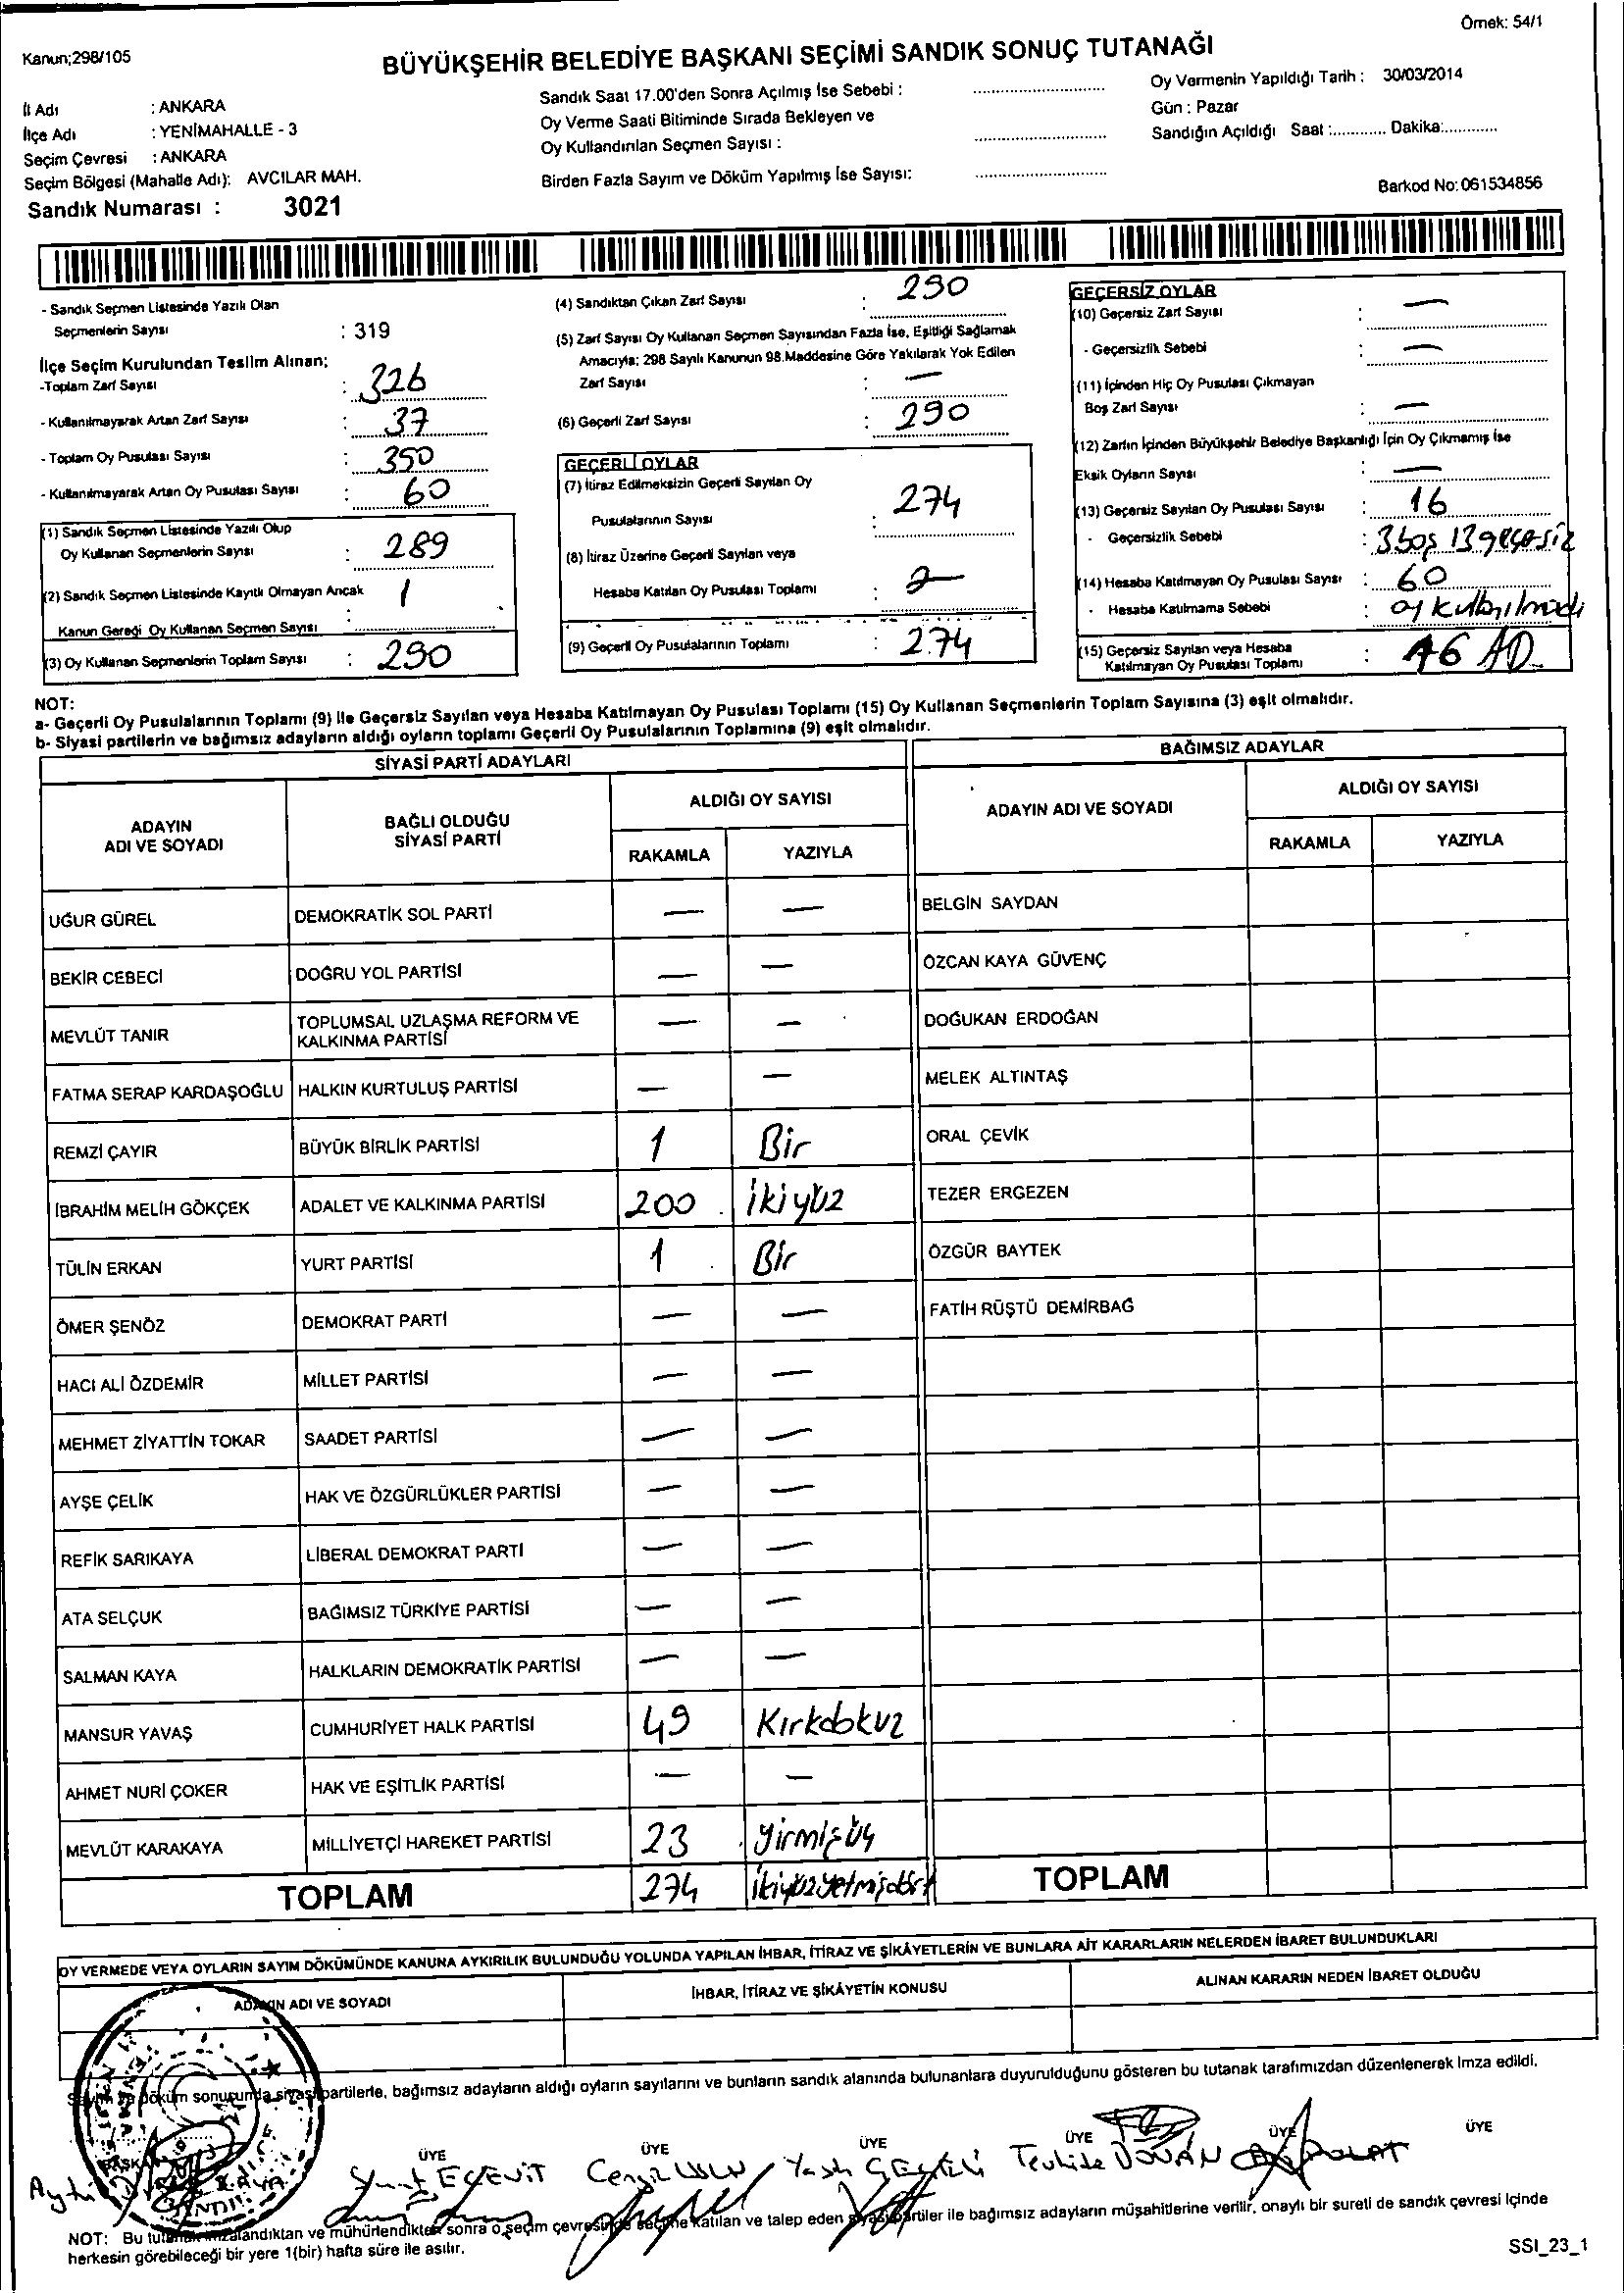 Örnek: 54/1
Kanun;298/105
BÜYÜKŞEHİR BELEDİYE BAŞKANI SEÇİMİ SANDIK SONUÇ TUTANAĞI
İl Adı : ANKARA
İlçe Adı : YENİMAHALLE - 3
Seçim Çevresi : ANKARA
Seçim Bölgesi (Mahalle Adı): AVCILAR MAH.
Sandık Numarası : 3021
Sandık Saat 17.00'den Sonra Açılmış İse Sebebi :
Oy Verme Saati Bitiminde Sırada Bekleyen ve
Oy Kullandırılan Seçmen Sayısı :
Birden Fazla Sayım ve Döküm Yapılmış İse Sayısı:
Oy Vermenin Yapıldığı Tarih : 30/03/2014
Gün : Pazar
Sandığın Açıldığı Saat :............ Dakika:............
Barkod No: 061534856
- Sandık Seçmen Listesinde Yazılı Olan
Seçmenlerin Sayısı : 319
İlçe Seçim Kurulundan Teslim Alınan;
-Toplam Zarf Sayısı : 326
- Kullanılmayarak Artan Zarf Sayısı : 37
- Toplam Oy Pusulası Sayısı : 350
- Kullanılmayarak Artan Oy Pusulası Sayısı : 60
(1) Sandık Seçmen Listesinde Yazılı Olup
Oy Kullanan Seçmenlerin Sayısı : 289
(2) Sandık Seçmen Listesinde Kayıtlı Olmayan Ancak 1
Kanun Gereği Oy Kullanan Seçmen Sayısı :
(3) Oy Kullanan Seçmenlerin Toplam Sayısı : 290
(4) Sandıktan Çıkan Zarf Sayısı : 290
(5) Zarf Sayısı Oy Kullanan Seçmen Sayısından Fazla İse, Eşitliği Sağlamak
Amacıyla; 298 Sayılı Kanunun 98.Maddesine Göre Yakılarak Yok Edilen
Zarf Sayısı : —
(6) Geçerli Zarf Sayısı : 290
GEÇERLİ OYLAR
(7) İtiraz Edilmeksizin Geçerli Sayılan Oy
Pusulalarının Sayısı : 274
(8) İtiraz Üzerine Geçerli Sayılan veya
Hesaba Katılan Oy Pusulası Toplamı :
(9) Geçerli Oy Pusulalarının Toplamı : 274
GEÇERSİZ OYLAR
(10) Geçersiz Zarf Sayısı : —
- Geçersizlik Sebebi : —
(11) İçinden Hiç Oy Pusulası Çıkmayan
Boş Zarf Sayısı : —
(12) Zarfın İçinden Büyükşehir Belediye Başkanlığı İçin Oy Çıkmamış İse
Eksik Oyların Sayısı : —
(13) Geçersiz Sayılan Oy Pusulası Sayısı : 16
- Geçersizlik Sebebi : 3 boş 13 geçersiz
(14) Hesaba Katılmayan Oy Pusulası Sayısı : 60
- Hesaba Katılmama Sebebi : oy kullanılmadı
(15) Geçersiz Sayılan veya Hesaba
Katılmayan Oy Pusulası Toplamı :
NOT:
a- Geçerli Oy Pusulalarının Toplamı (9) ile Geçersiz Sayılan veya Hesaba Katılmayan Oy Pusulası Toplamı (15) Oy Kullanan Seçmenlerin Toplam Sayısına (3) eşit olmalıdır.
b- Siyasi partilerin ve bağımsız adayların aldığı oyların toplamı Geçerli Oy Pusulalarının Toplamına (9) eşit olmalıdır.
SİYASİ PARTİ ADAYLARI
ADAYIN ADI VE SOYADI
BAĞLI OLDUĞU SİYASİ PARTİ
ALDIĞI OY SAYISI
RAKAMLA YAZIYLA
UĞUR GÜREL DEMOKRATİK SOL PARTİ — —
BEKİR CEBECİ DOĞRU YOL PARTİSİ — —
MEVLÜT TANIR TOPLUMSAL UZLAŞMA REFORM VE KALKINMA PARTİSİ — —
FATMA SERAP KARDAŞOĞLU HALKIN KURTULUŞ PARTİSİ — —
REMZİ ÇAYIR BÜYÜK BİRLİK PARTİSİ 1 Bir
İBRAHİM MELİH GÖKÇEK ADALET VE KALKINMA PARTİSİ 200 ikiyüz
TÜLİN ERKAN YURT PARTİSİ 1 Bir
ÖMER ŞENÖZ DEMOKRAT PARTİ — —
HACI ALİ ÖZDEMİR MİLLET PARTİSİ — —
MEHMET ZİYATTİN TOKAR SAADET PARTİSİ — —
AYŞE ÇELİK HAK VE ÖZGÜRLÜKLER PARTİSİ — —
REFİK SARIKAYA LİBERAL DEMOKRAT PARTİ — —
ATA SELÇUK BAĞIMSIZ TÜRKİYE PARTİSİ — —
SALMAN KAYA HALKLARIN DEMOKRATİK PARTİSİ — —
MANSUR YAVAŞ CUMHURİYET HALK PARTİSİ 49 Kırkdokuz
AHMET NURİ ÇOKER HAK VE EŞİTLİK PARTİSİ — —
MEVLÜT KARAKAYA MİLLİYETÇİ HAREKET PARTİSİ 23 yirmiüç
TOPLAM 274 ikiyüzyetmişdört
BAĞIMSIZ ADAYLAR
ADAYIN ADI VE SOYADI
ALDIĞI OY SAYISI
RAKAMLA YAZIYLA
BELGİN SAYDAN
ÖZCAN KAYA GÜVENÇ
DOĞUKAN ERDOĞAN
MELEK ALTINTAŞ
ORAL ÇEVİK
TEZER ERGEZEN
ÖZGÜR BAYTEK
FATİH RÜŞTÜ DEMİRBAĞ
TOPLAM
OY VERMEDE VEYA OYLARIN SAYIM DÖKÜMÜNDE KANUNA AYKIRILIK BULUNDUĞU YOLUNDA YAPILAN İHBAR, İTİRAZ VE ŞİKÂYETLERİN VE BUNLARA AİT KARARLARIN NELERDEN İBARET BULUNDUKLARI
ADAYIN ADI VE SOYADI
İHBAR, İTİRAZ VE ŞİKÂYETİN KONUSU
ALINAN KARARIN NEDEN İBARET OLDUĞU
Sayım ve döküm sonucunda siyasi partilerle, bağımsız adayların aldığı oyların sayılarını ve bunların sandık alanında bulunanlara duyurulduğunu gösteren bu tutanak tarafımızdan düzenlenerek imza edildi.
BAŞKAN ÜYE ÜYE ÜYE ÜYE ÜYE ÜYE
ECEVİT Cengiz USLU Tevhide DOĞAN POLAT
NOT: Bu tutanak imzalandıktan ve mühürlendikten sonra o seçim çevresinde seçime katılan ve talep eden siyasi partiler ile bağımsız adayların müşahitlerine verilir, onaylı bir sureti de sandık çevresi içinde
herkesin görebileceği bir yere 1(bir) hafta süre ile asılır.
SSI_23_1